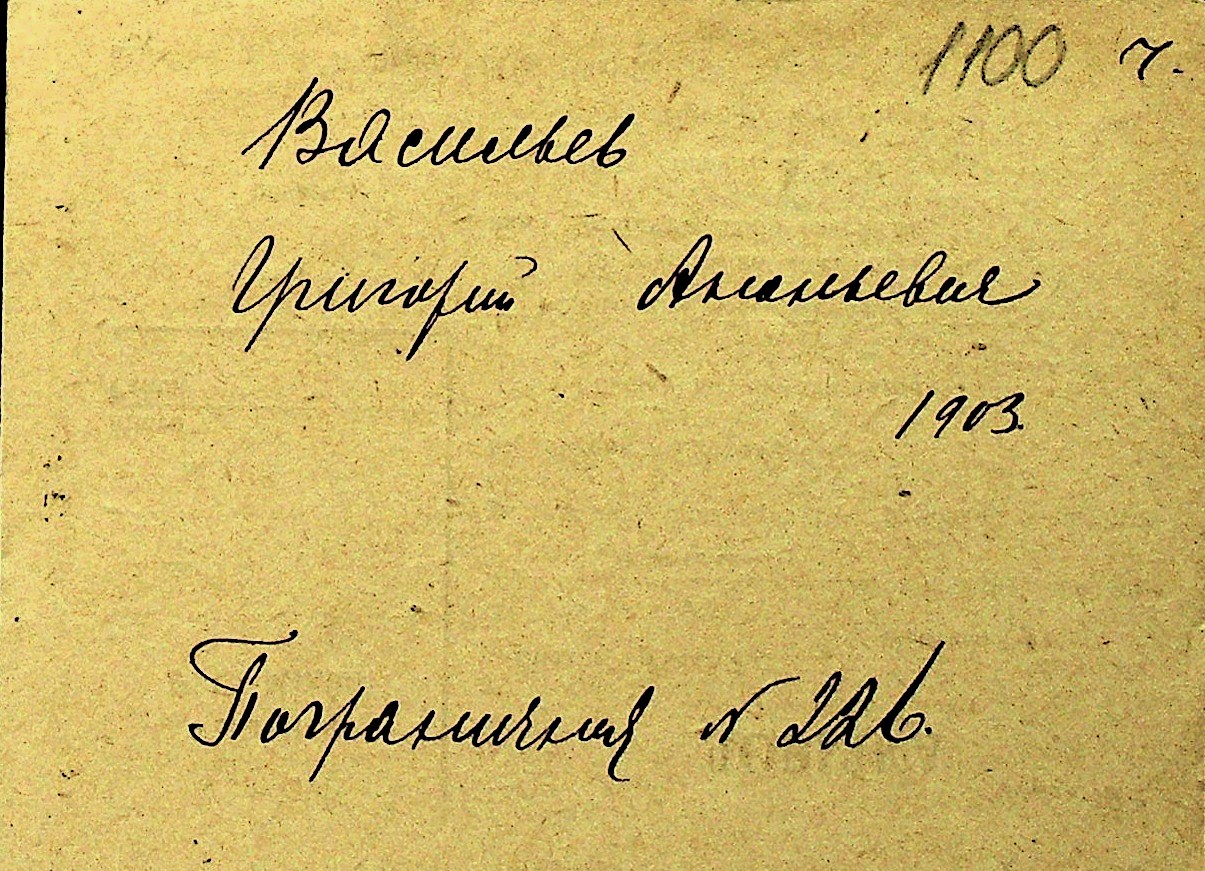 1100 ч.
Васильев
Григорий Ананьевич
1903.
Пограничная № 226.